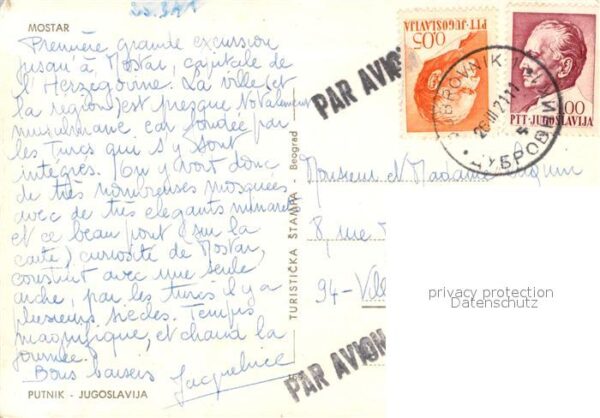 MOSTAR
Première grande excursion
jusqu'à Mostar, capitale de
l'Herzégovine. La ville (et
la région) est presque totalement
musulmane car fondée par
les Turcs qui s'y sont
intégrés. On y voit donc
de très nombreuses mosquées
avec de très élégants minarets
et ce beau pont (sur la
carte) curiosité de Mostar,
construit avec une seule
arche, par les turcs il y a
plusieurs siècles. Temps
magnifique, et chaud la
journée.
Bons baisers Jacqueline
PUTNIK - JUGOSLAVIJA
TURISTIČKA ŠTAMPA Beograd
PAR AVION
0.05
PTT-JUGOSLAVIJA
1.00
PTT-JUGOSLAVIJA
DUBROVNIK
ДУБРОВ
Monsieur et Madame
8 rue
94-Vill
PAR AVION
privacy protection
Datenschutz